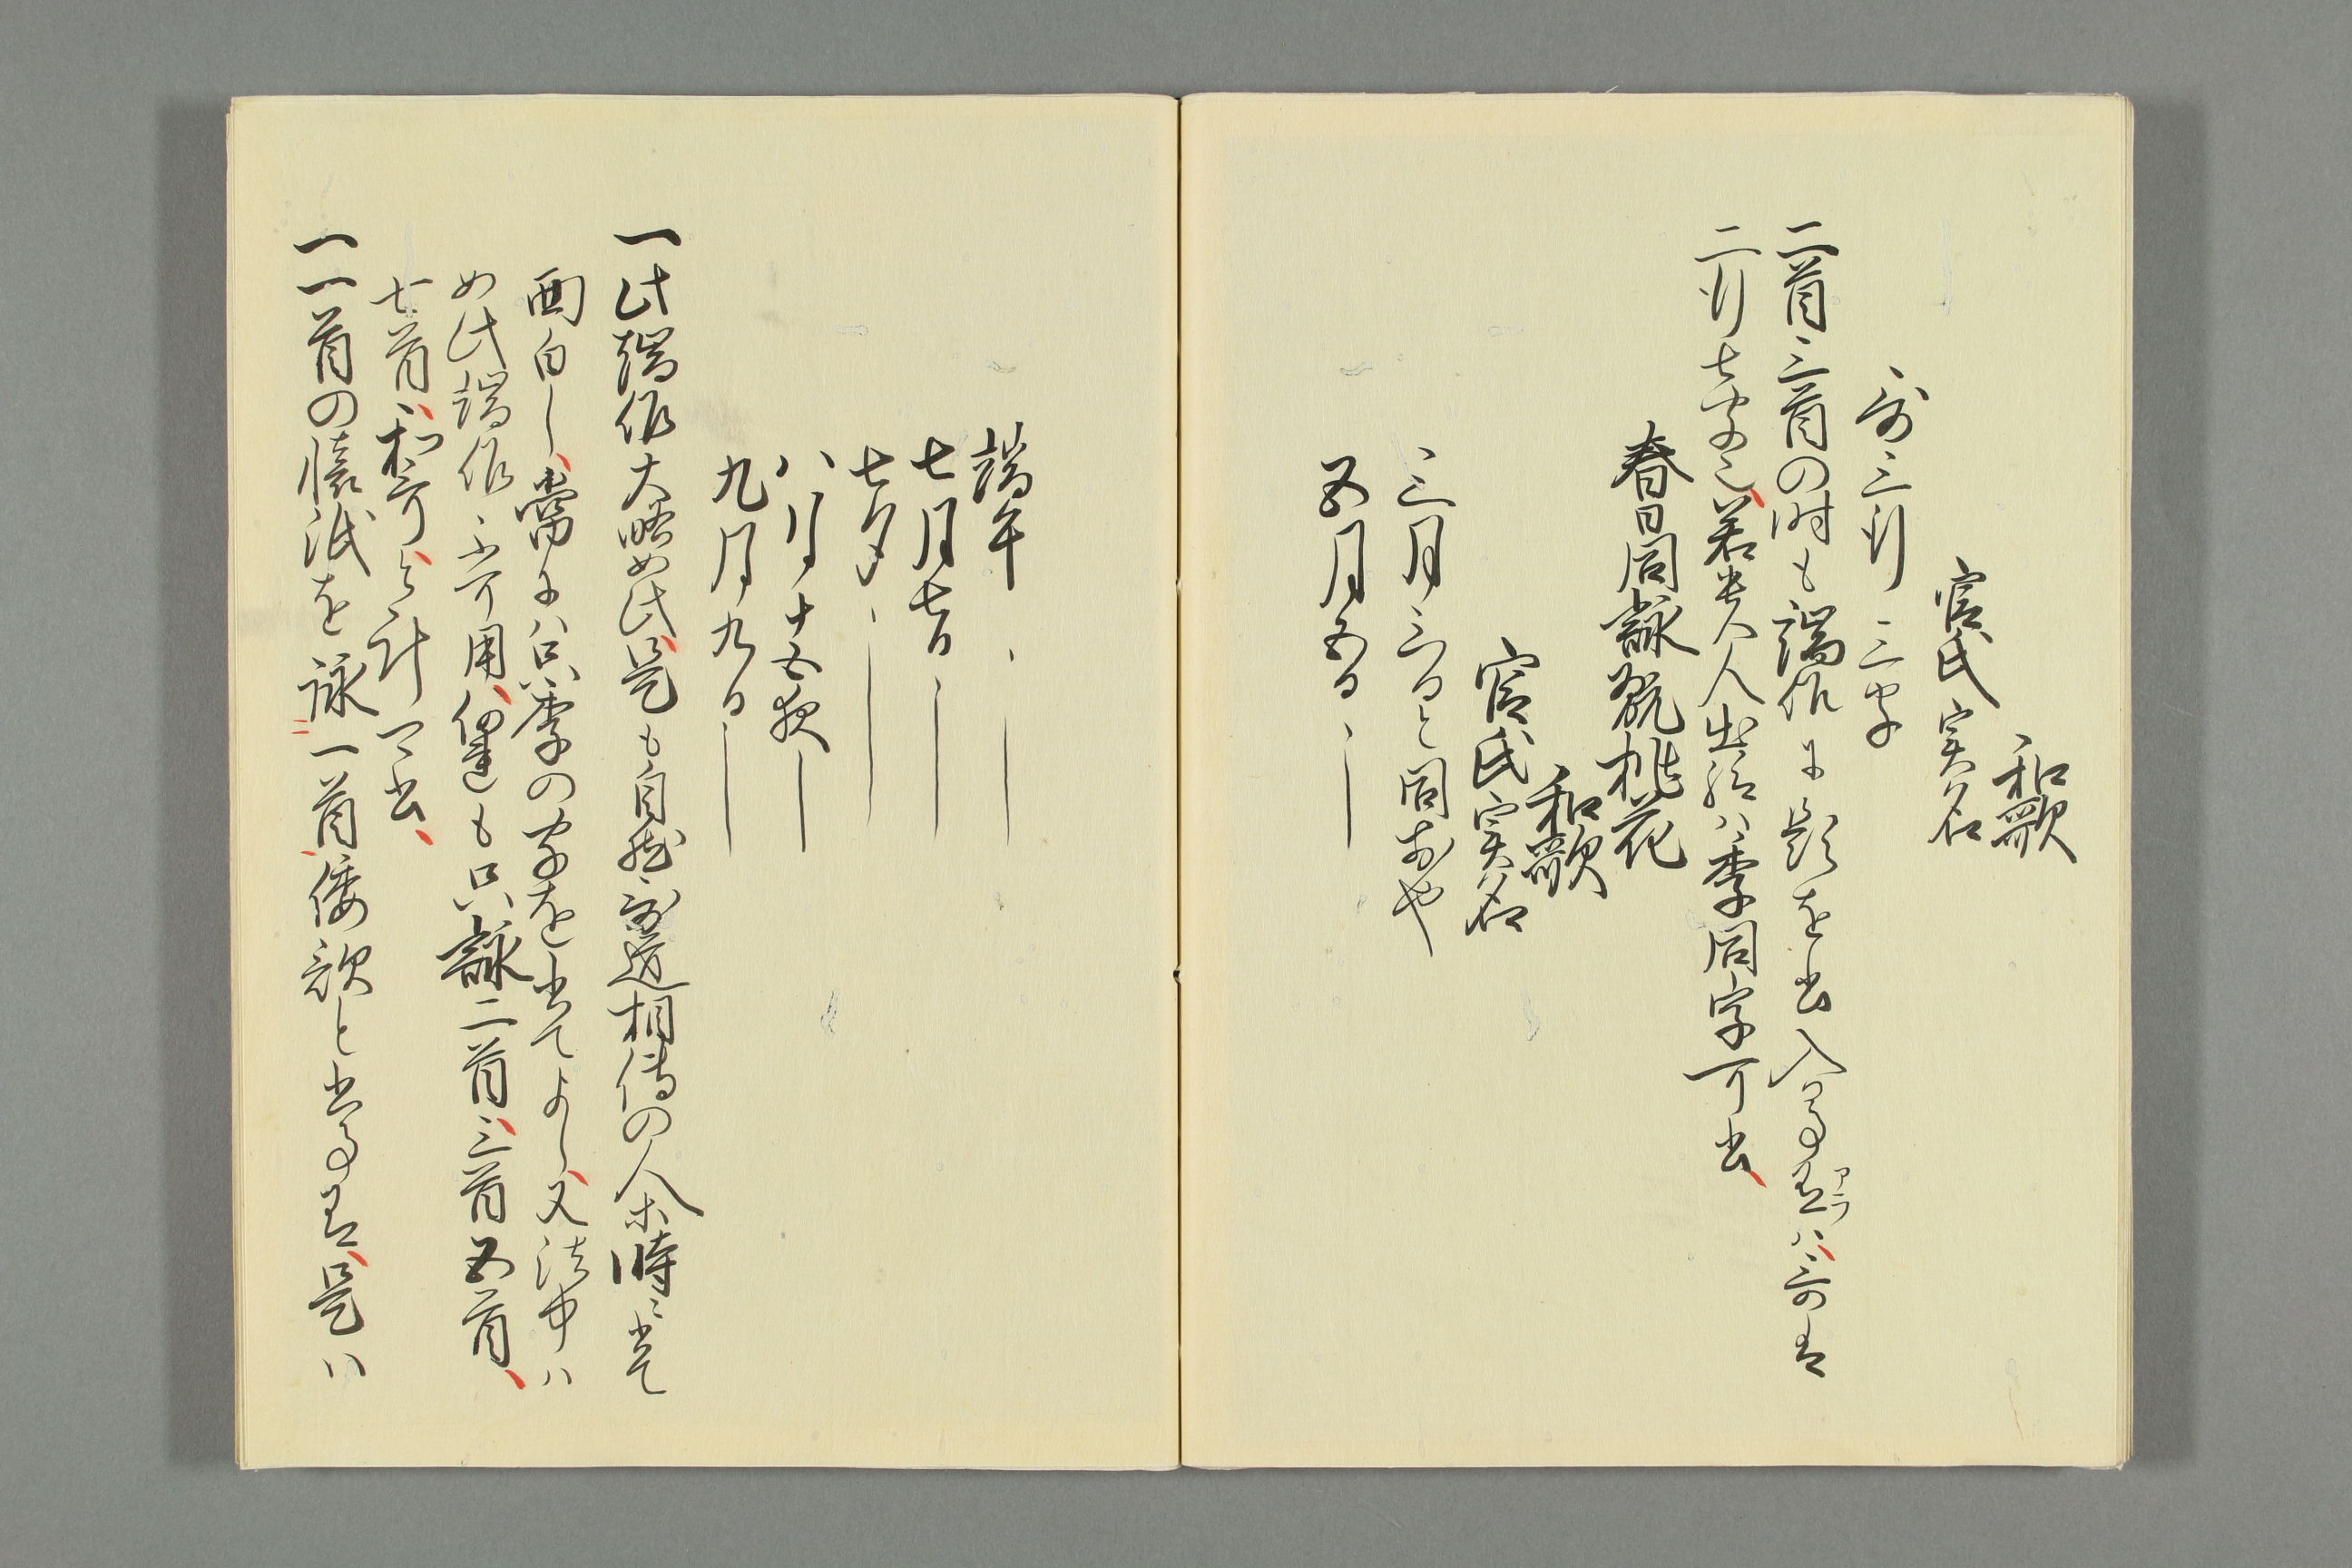 和歌
官氏実名
哥三行三字
二首三首の時も端作に題を書入る事有アラハ哥は
二行七字也若貴人出給ハ季同字可書
春日同詠翫桃花
和歌
官氏実名
三月三日と同前也
五月五日
端午
七月七日
七夕
八月十五夜
九月九日
一此端作大略如此是も自然哥道相傳の人示時ニ書て
面白し常にハ只季の字を書てよし又法中ハ
如此端作不可用僅も只詠二首三首五首
七首和哥と計可書
一一首の懐紙を詠一首倭歌と書事有是ハ